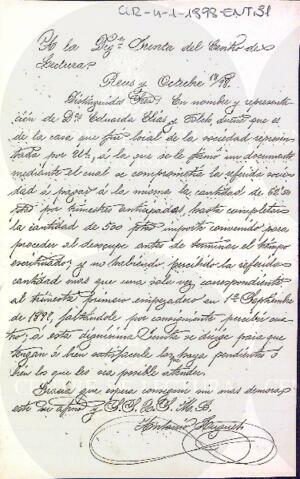 CLR-4-1-1898-ENT.31
A la Dig.ma Junta del Centro de
Lectura.
Reus y Octubre 1º/98.
Distinguidos Sres: En nombre y representa-
ción de Dª Eduarda Elías y Folch, dueña que es
de la casa que fué local de la sociedad represen-
tada por Uds, á la que se le firmó un documento
mediante el cual se comprometía la referida socie-
dad á pagar á la misma la cantidad de 62'50
ptas por trimestres anticipados, hasta completar
la cantidad de 500 ptas importe convenido para
proceder al desocupo antes de terminar el tiempo
escriturado, y no habiendo percibido la referida
cantidad mas que una sola vez, correspondientes
al trimestre primero empezado en 1º Septiembre
de 1897, faltándole por consiguiente percibir cua-
tro, á esta dignísima Junta se dirige para que
tengan á bien satisfacerle los que haya pendientes ó
bien lo que les sea posible atender.
Gracia que espera conseguir sin mas demora
este su afmo y S. S. Q. S. M. B.
Antonio Huguet